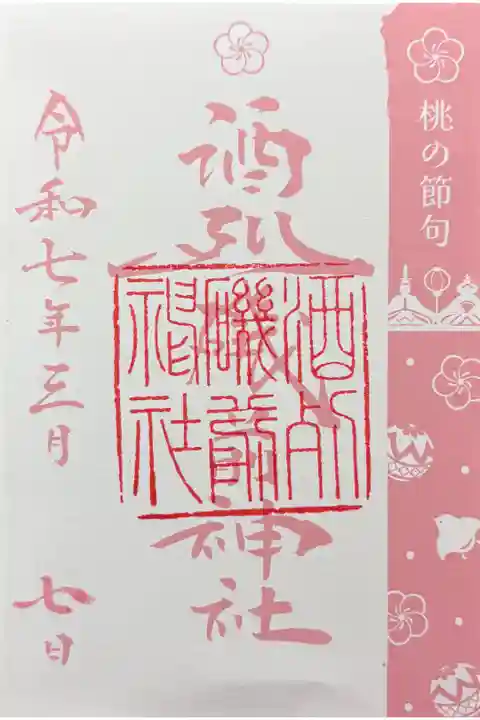 桃の節句
酒列磯前神社
酒列
磯前
神社
令和七年三月 七日